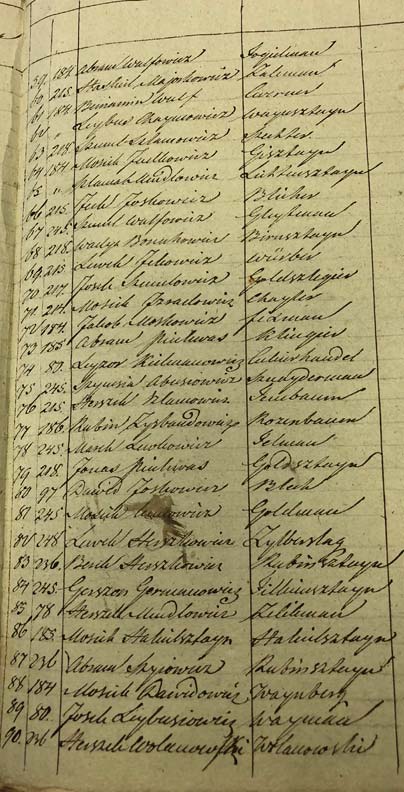 59. 184. Abram Wulfowicz Fogielman
60. 215. Haskiel Majorkowicz Zaleman
61. 184. Beniamin Wulf
62. " Leybus Chaymowicz Waynsztayn
63. 218. Szmul Szlamowicz Szuster
64 184. Mosiek Judkowicz Gisztayn
65 " Szlamak Mudlowicz Lichtensztayn
66 215. Josk Joskowicz Blicher
67 245. Szmul Wulfowicz Gleytman
68 218. Boruchowicz Birnsztayn
69. 215 Lewek Jckowicz Wirber
70. 217. Josek Szmulowicz Goldszlegier
71 214. Mosiek Izraelowicz Chayter
72 184. Jakob Moskowicz Fidman
73 185 Abram Pinkwas Klingier
74 80. Leyzor Kielmanowicz Cukierhandel
75 245. Abusiowicz Sznayderman
76 215 Herszek Szlamowicz
77 186. Rubin Zysbaudowicz Rozenbaum
78 245. Marek Lewkowicz Jelman
79 218. Jonas Pinkwas Goldsztayn
80 97 Dawid Joskowicz Blech
81 245 Mosiek Goldman
82 248 Lewek Herszkowicz Zylberlag
83 236. Berek Herszkowicz Rubinsztayn
84 245. Gerszon Germanowicz
85 78 Herszek Mudlowicz Zelikman
86 183. Mosiek Hakielsztayn Hakielsztayn
87 236 Abram Rubinsztayn
88 184 Mosiek Dawidowicz Waynberg
89 80. Josek Leybusiowicz Wayman
90. 236 Herszek Wolanowski Wolanowski